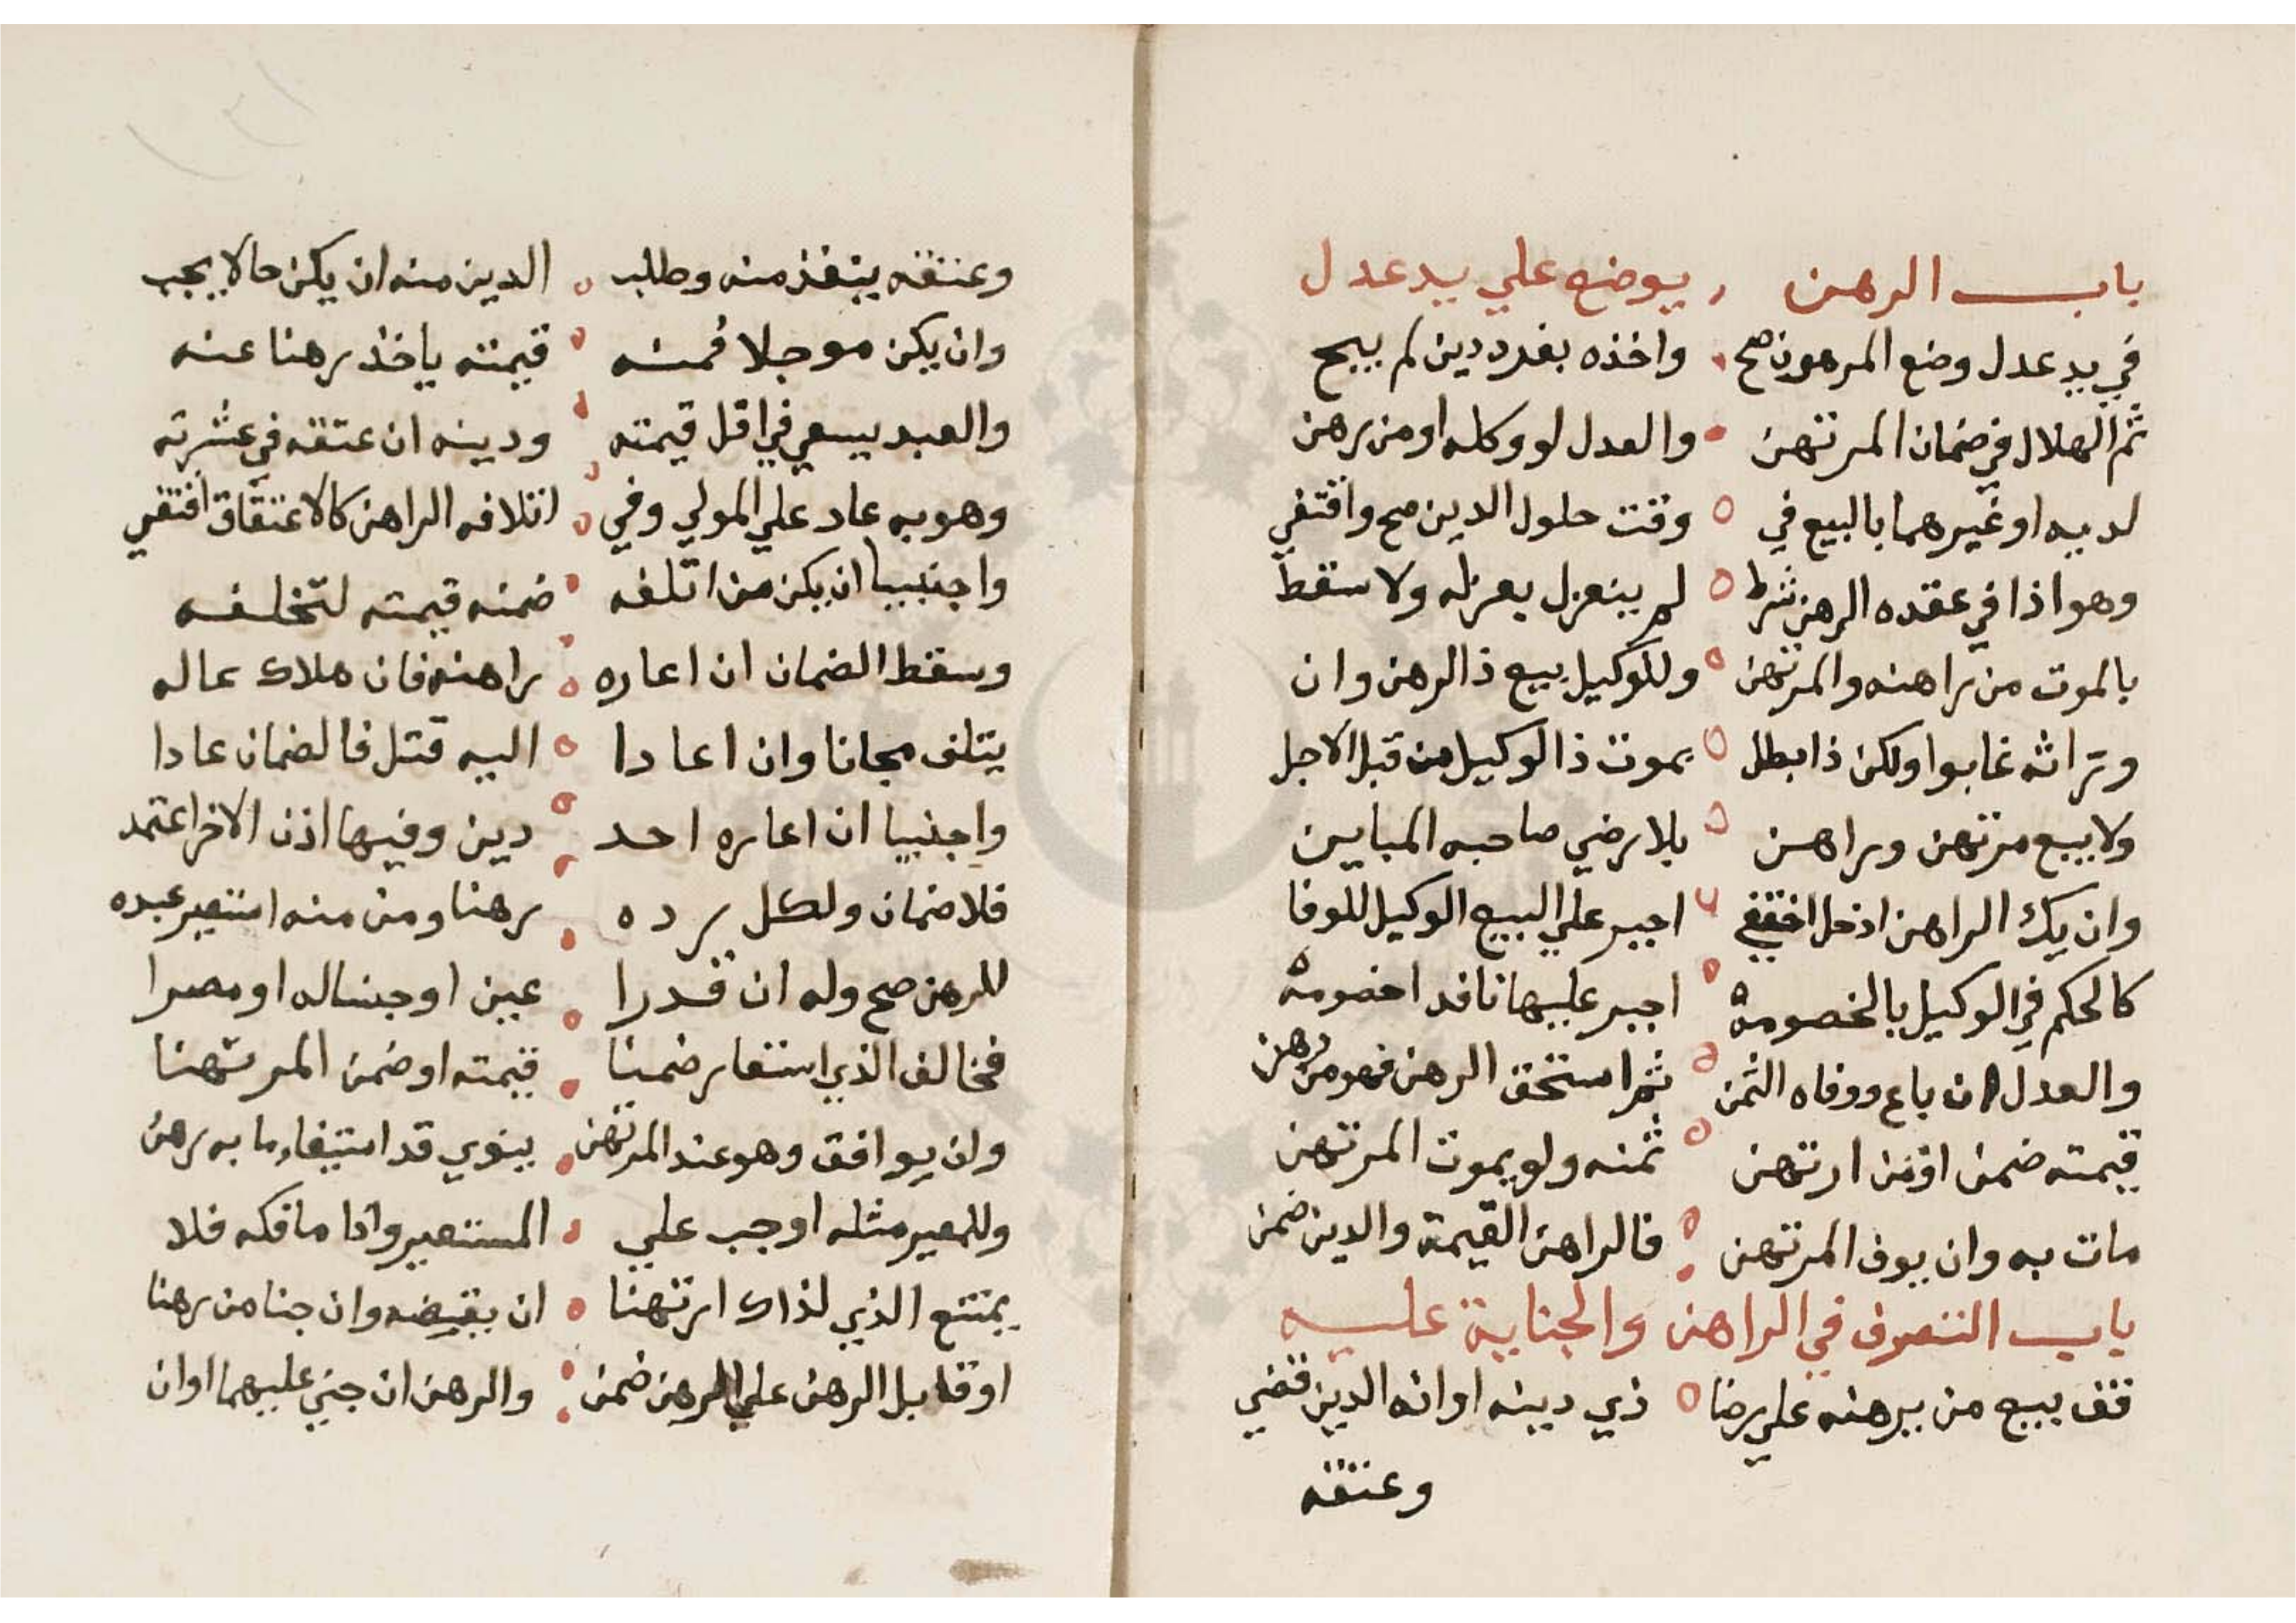 باب الرهن يوضع علي يد عدل
في يد عدل وضع المرهون صح واخذه بغدر دين لم يبح
ثم الهلال في ضمان المرتهن والعدل لو وكله او من رهن
لديه او غيرهما بالبيع في وقت حلول الدين صح واقتفي
وهو اذا في عقده الرهن شرط لم ينعزل بعزله ولا سقط
بالموت من راهنه والمرتهن وللوكيل بيع ذا الرهن وان
وتراثه غابوا ولكن ذا بطل بموت ذا الوكيل من قبل الاجل
ولا يبيع مرتهن وراهن بلا رضي صاحبه المباين
وان يك الراهن اذ حل اختفي اجبر علي البيع الوكيل للوفا
كالحكم في الوكيل بالخصومة اجبر عليها نافدا خصومة
والعدل ان باع ووفاه الثمن ثم استحق الرهن فهو من رهن
قيمته ضمن او من ارتهن ثمنه ولو يموت المرتهن
مات به وان يوف المرتهن فالراهن القيمة والدين ضمن
باب التصرف في الراهن والجناية عليه
قف بيع من يرهنه علي رضا ذي دينه او انه الدين قضي
وعتقه
وعتقه ينفذ منه وطلب الدين منه ان يكن حالا يجب
وان يكن موجلا فمنه قيمته ياخذ رهنا عنه
والعبد يسعي في اقل قيمته ودينه ان عتقه في عشرته
وهو به عاد علي المولي وفي اتلافه الراهن كالاعتقاق اقتفي
واجنبيا ان يكن من اتلفه ضمنه قيمته لتخلفه
وسقط الضمان ان اعاره راهنه فان هلاك عاله
يتلف مجانا وان اعادا اليه قتل فالضمان عادا
واجنبيا ان اعاره احد دين وفيها اذن الاخر اعتمد
فلا ضمان ولكل رده رهنا ومن منه استعير عبده
للرهن صح وله ان قدرا عين او جنسا له او مصرا
فخالف الذي استعار ضمنا قيمته او ضمن المرتهنا
وان يوافق وهو عند المرتهن ينوي قد استيفاء ما به رهن
وللمعير مثله اوجب علي المستعير واذا ما فكه فلا
يمتنع الذي لذاك ارتهنا ان يقبضه وان جنا من رهنا
او قابل الرهن علي الرهن ضمن والرهن ان جني عليهما اوان